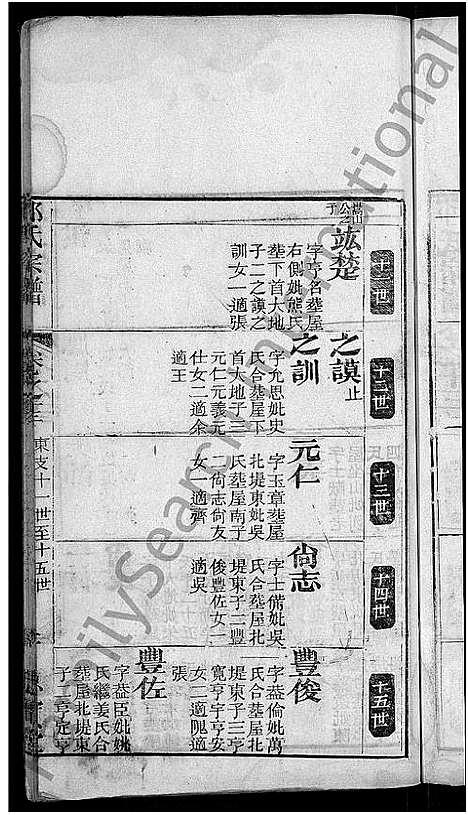 十一世
嵩山
公之
子
竑楚
字亨名塟屋
右側妣熊氏
塟下首大地
子二之謨之
訓女一適張
十二世
之謨止
之訓
字允思妣史
氏合塟屋下
首大地子三
元仁元義元
仕女二適余
適王
十三世
元仁
字玉章塟屋
北堤東妣吳
氏塟屋南子
二尙志尙友
女一適齊
十四世
尙志
字士僃妣吳
氏合塟屋北
堤東子二豐
俊豐佐女一
適吳
十五世
豐俊
字蓋倫妣萬
氏合塟屋北
堤東子三亨
寛亨宇亨安
女二適隗適
張
豐佐
字蓋臣妣姚
氏繼姜氏合
塟屋北堤東
子二亨定亨
氏宗譜
卷之三
東支十一世至十五世
FamilySearch International